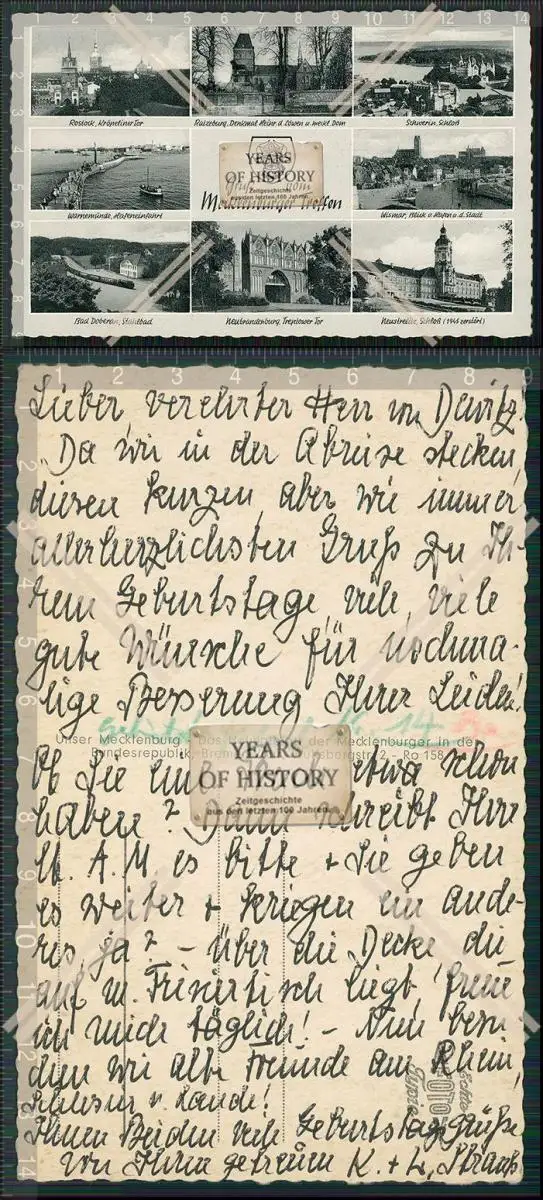 Rostock, Kröpeliner Tor
Ratzeburg, Denkmal Heinr. d. Löwen u. meckl. Dom
Schwerin, Schloß
YEARS
OF HISTORY
Zeitgeschichte
aus den letzten 100 Jahren
Mecklenburger Treffen
Warnemünde, Hafeneinfahrt
Wismar, Blick a. Hafen u. d. Stadt
Bad Doberan, Stahlbad
Neubrandenburg, Treptower Tor
Neustrelitz, Schloß (1945 zerstört)
Lieber, verehrter Herr von Dewitz!
Da wir in der Abreise stecken,
diesen kurzen, aber wie immer
allerherzlichsten Gruß zu Ih-
rem Geburtstage, viele, viele
gute Wünsche für nochma-
lige Besserung Ihrer Leiden!
Unser Mecklenburg - Das Heimatblatt der Mecklenburger in der
Bundesrepublik, Bremen 2 - Ro 158
Ob Sie etwa schon
YEARS
OF HISTORY
Zeitgeschichte
aus den letzten 100 Jahren
haben? Dann schreibt Ihre
lb. A. M. es bitte + Sie geben
es weiter + kriegen ein ande-
res, ja? - Über die Decke, die
auf m. Frisiertisch liegt, freue
ich mich täglich! - Nun besu-
chen wir alte Freunde am Rhein,
z. Lande!
Ihnen Beiden viele Geburtstagsgrüße
von Ihren getreuen K. + L. Strauß
FOTO